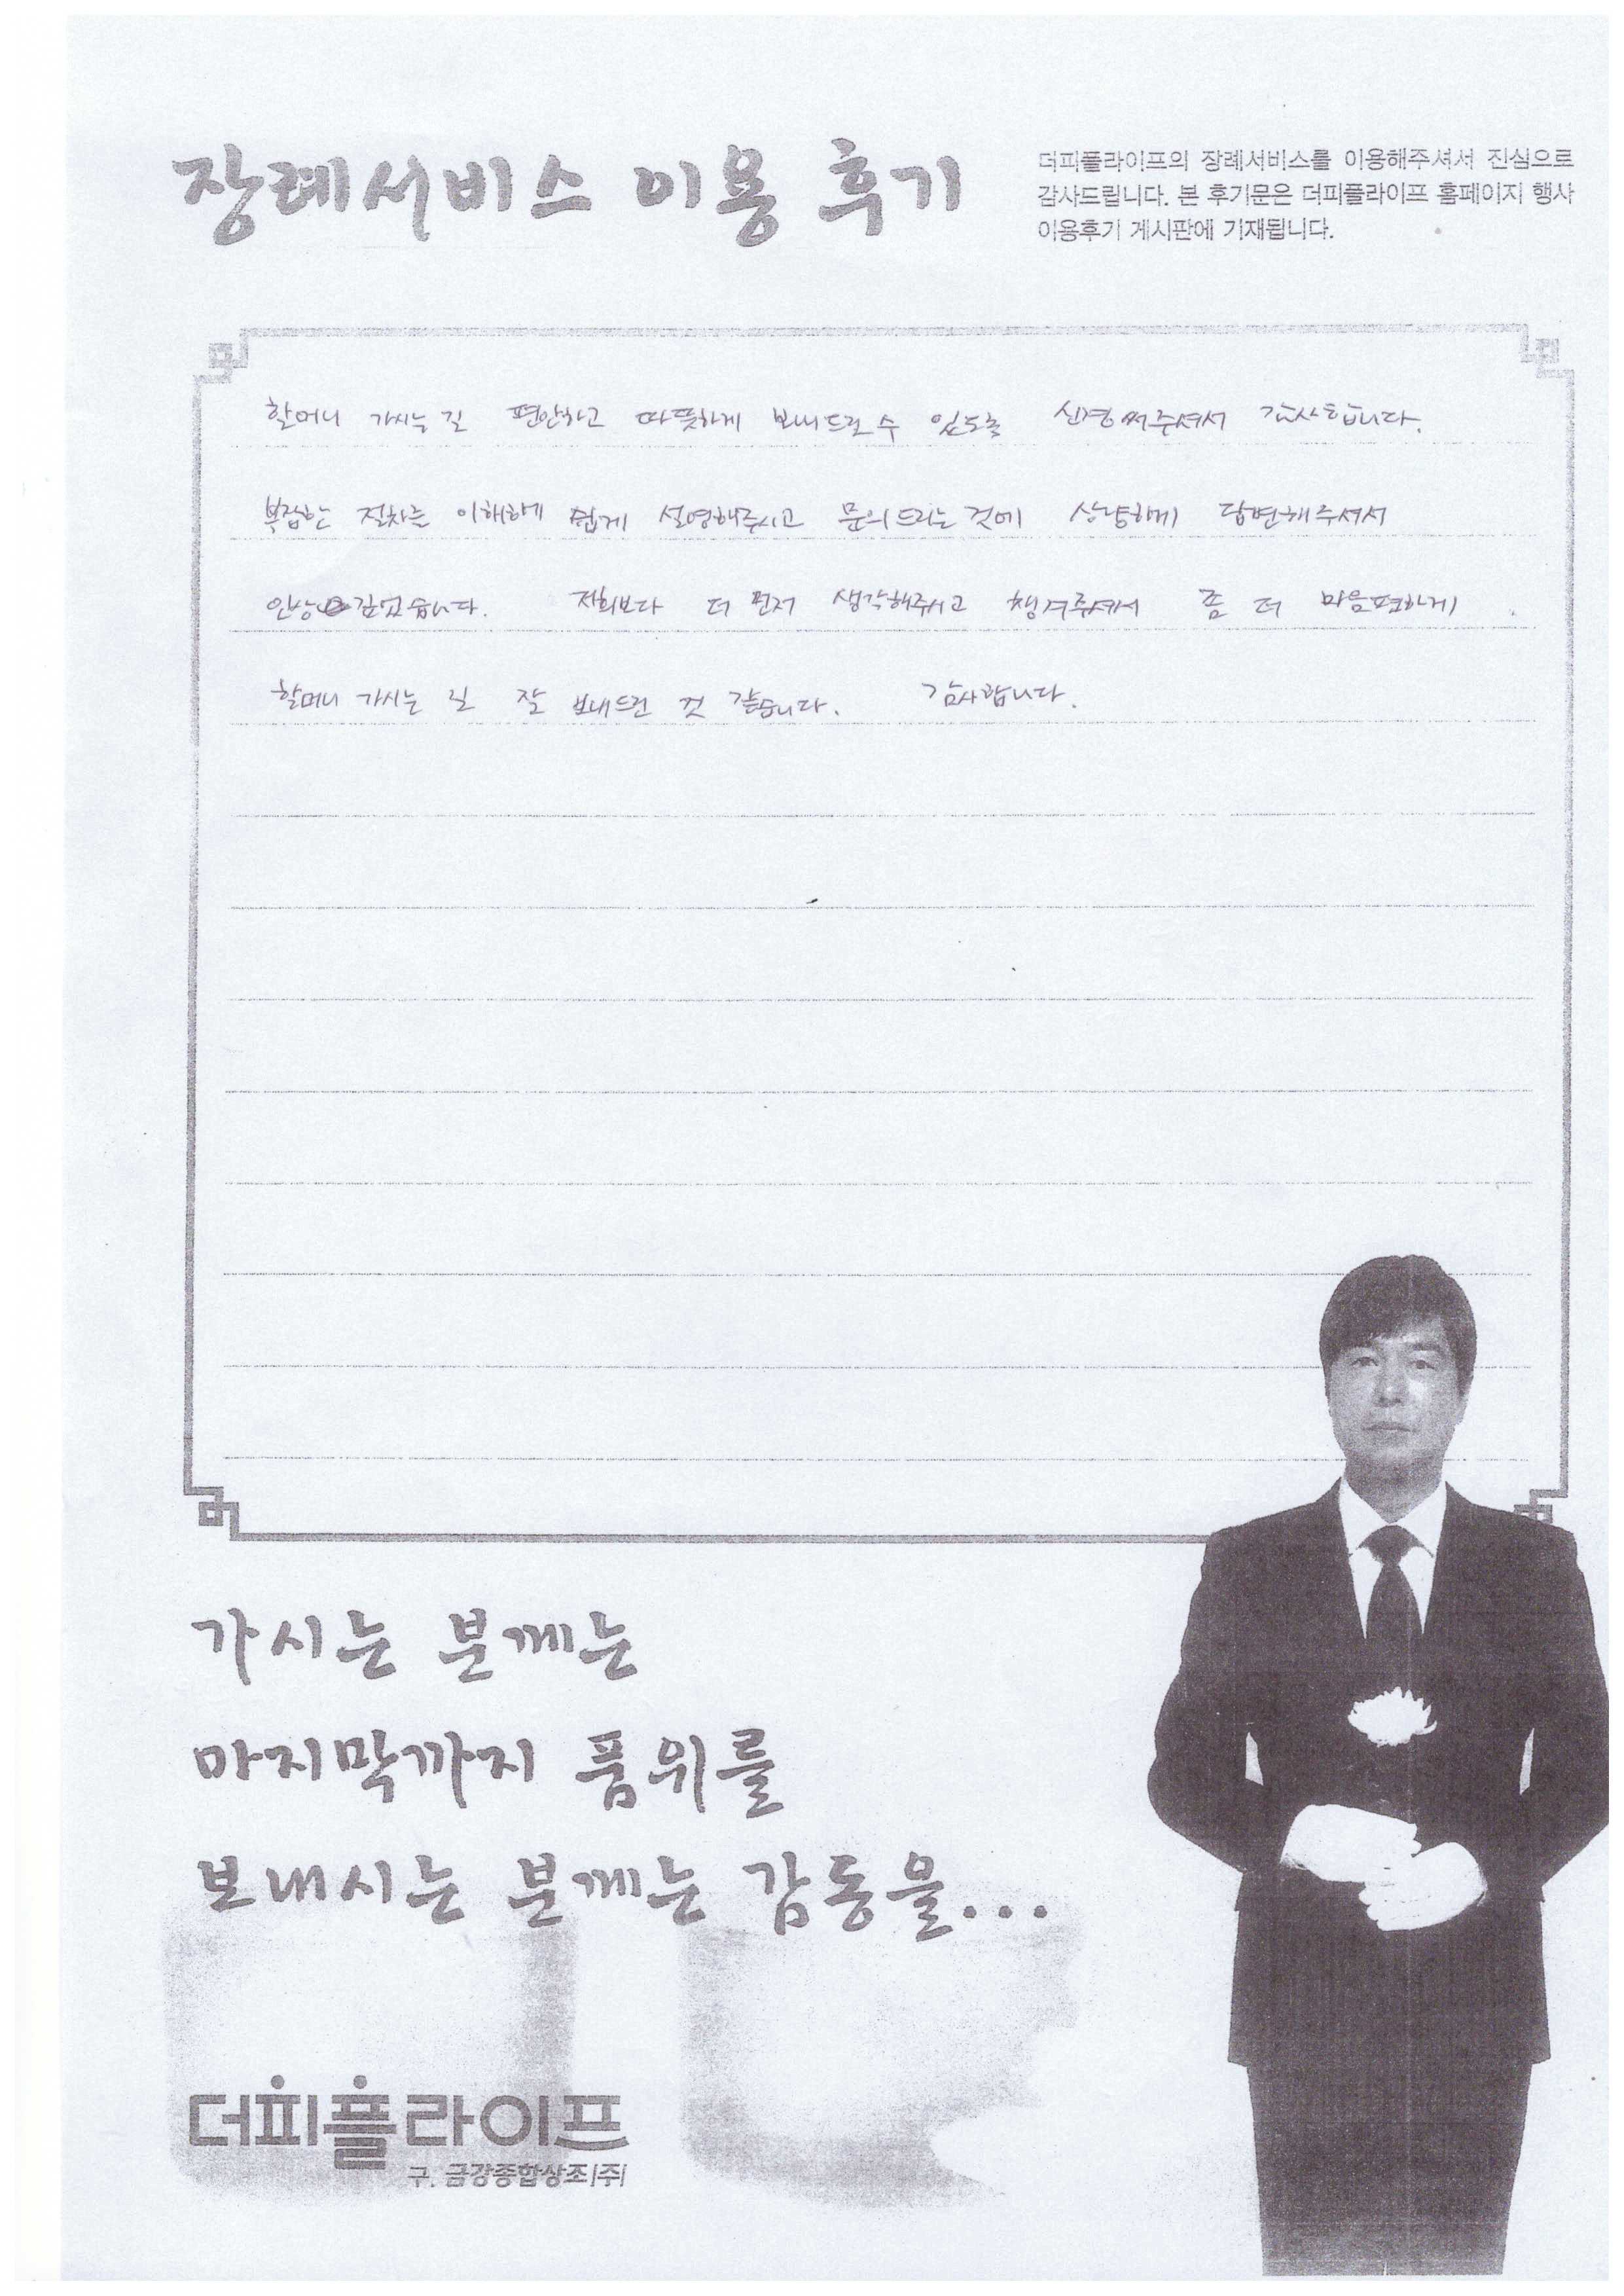 장례서비스 이용 후기
더피플라이프의 장례서비스를 이용해주셔서 진심으로
감사드립니다. 본 후기문은 더피플라이프 홈페이지 행사
이용후기 게시판에 기재됩니다.
할머니 가시는 길 편안하고 따뜻하게 보내드릴 수 있도록 신경써주셔서 감사합니다.
복잡한 절차를 이해하게 쉽게 설명해주시고 문의드리는 것에 상냥하게 답변해주셔서
인상 깊었습니다. 저희보다 더 먼저 생각해주시고 챙겨주셔서 좀 더 마음편하게
할머니 가시는 길 잘 보내드린 것 같습니다. 감사합니다.
가시는 분께는
마지막까지 품위를
보내시는 분께는 감동을...
더피플라이프
구. 금강종합상조(주)